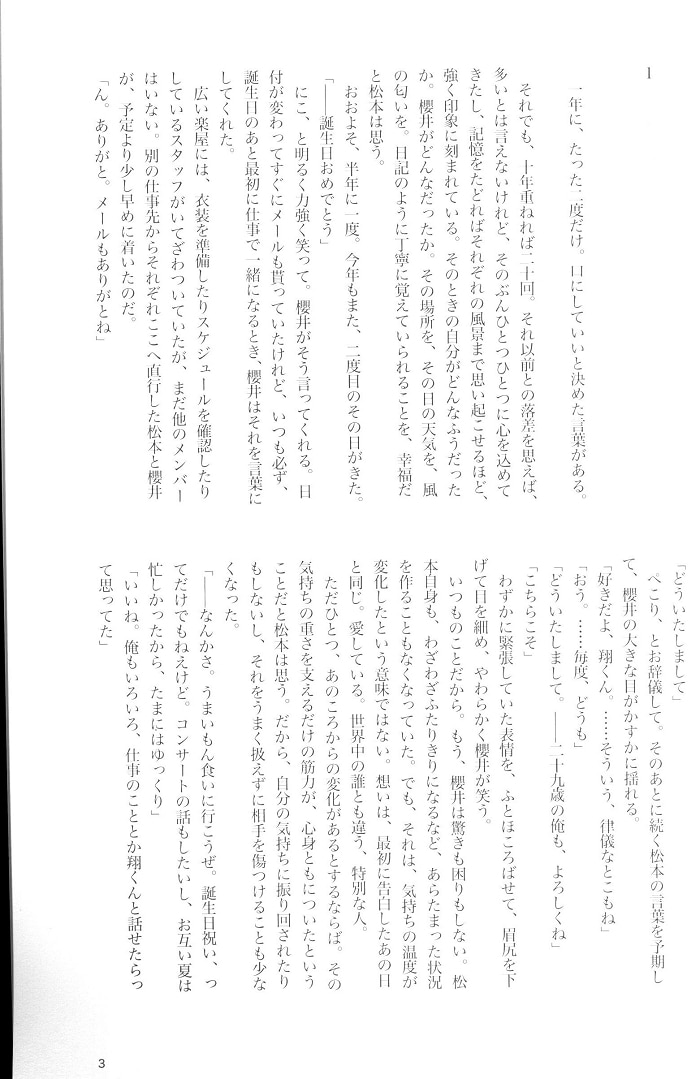 1
一年に、たった二度だけ。口にしていいと決めた言葉がある。
それでも、十年重ねれば二十回。それ以前との落差を思えば、
多いとは言えないけれど、そのぶんひとつひとつに心を込めて
きたし、記憶をたどればそれぞれの風景まで思い起こせるほど、
強く印象に刻まれている。そのときの自分がどんなふうだった
か。櫻井がどんなだったか。その場所を、その日の天気を、風
の匂いを。日記のように丁寧に覚えていられることを、幸福だ
と松本は思う。
おおよそ、半年に一度。今年もまた、二度目のその日がきた。
「――誕生日おめでとう」
にこ、と明るく力強く笑って。櫻井がそう言ってくれる。日
付が変わってすぐにメールも貰っていたけれど、いつも必ず、
誕生日のあと最初に仕事で一緒になるとき、櫻井はそれを言葉に
してくれた。
広い楽屋には、衣装を準備したりスケジュールを確認したり
しているスタッフがいてざわついていたが、まだ他のメンバー
はいない。別の仕事先からそれぞれここへ直行した松本と櫻井
が、予定より少し早めに着いたのだ。
「ん。ありがと。メールもありがとね」
「どういたしまして」
ぺこり、とお辞儀して。そのあとに続く松本の言葉を予期し
て、櫻井の大きな目がかすかに揺れる。
「好きだよ、翔くん。……そういう、律儀なとこもね」
「おう。……毎度、どうも」
「どういたしまして。――二十九歳の俺も、よろしくね」
「こちらこそ」
わずかに緊張していた表情を、ふとほころばせて、眉尻を下
げて目を細め、やわらかく櫻井が笑う。
いつものことだから。もう、櫻井は驚きも困りもしない。松
本自身も、わざわざふたりきりになるなど、あらたまった状況
を作ることもなくなっていた。でも、それは、気持ちの温度が
変化したという意味ではない。想いは、最初に告白したあの日
と同じ。愛している。世界中の誰とも違う、特別な人。
ただひとつ、あのころからの変化があるとするならば。その
気持ちの重さを支えるだけの筋力が、心身ともについたという
ことだと松本は思う。だから、自分の気持ちに振り回されたり
もしないし、それをうまく扱えずに相手を傷つけることも少な
くなった。
「――なんかさ。うまいもん食いに行こうぜ。誕生日祝い、っ
てだけでもねえけど。コンサートの話もしたいし、お互い夏は
忙しかったから、たまにはゆっくり」
「いいね。俺もいろいろ、仕事のこととか翔くんと話せたらっ
て思ってた」
3